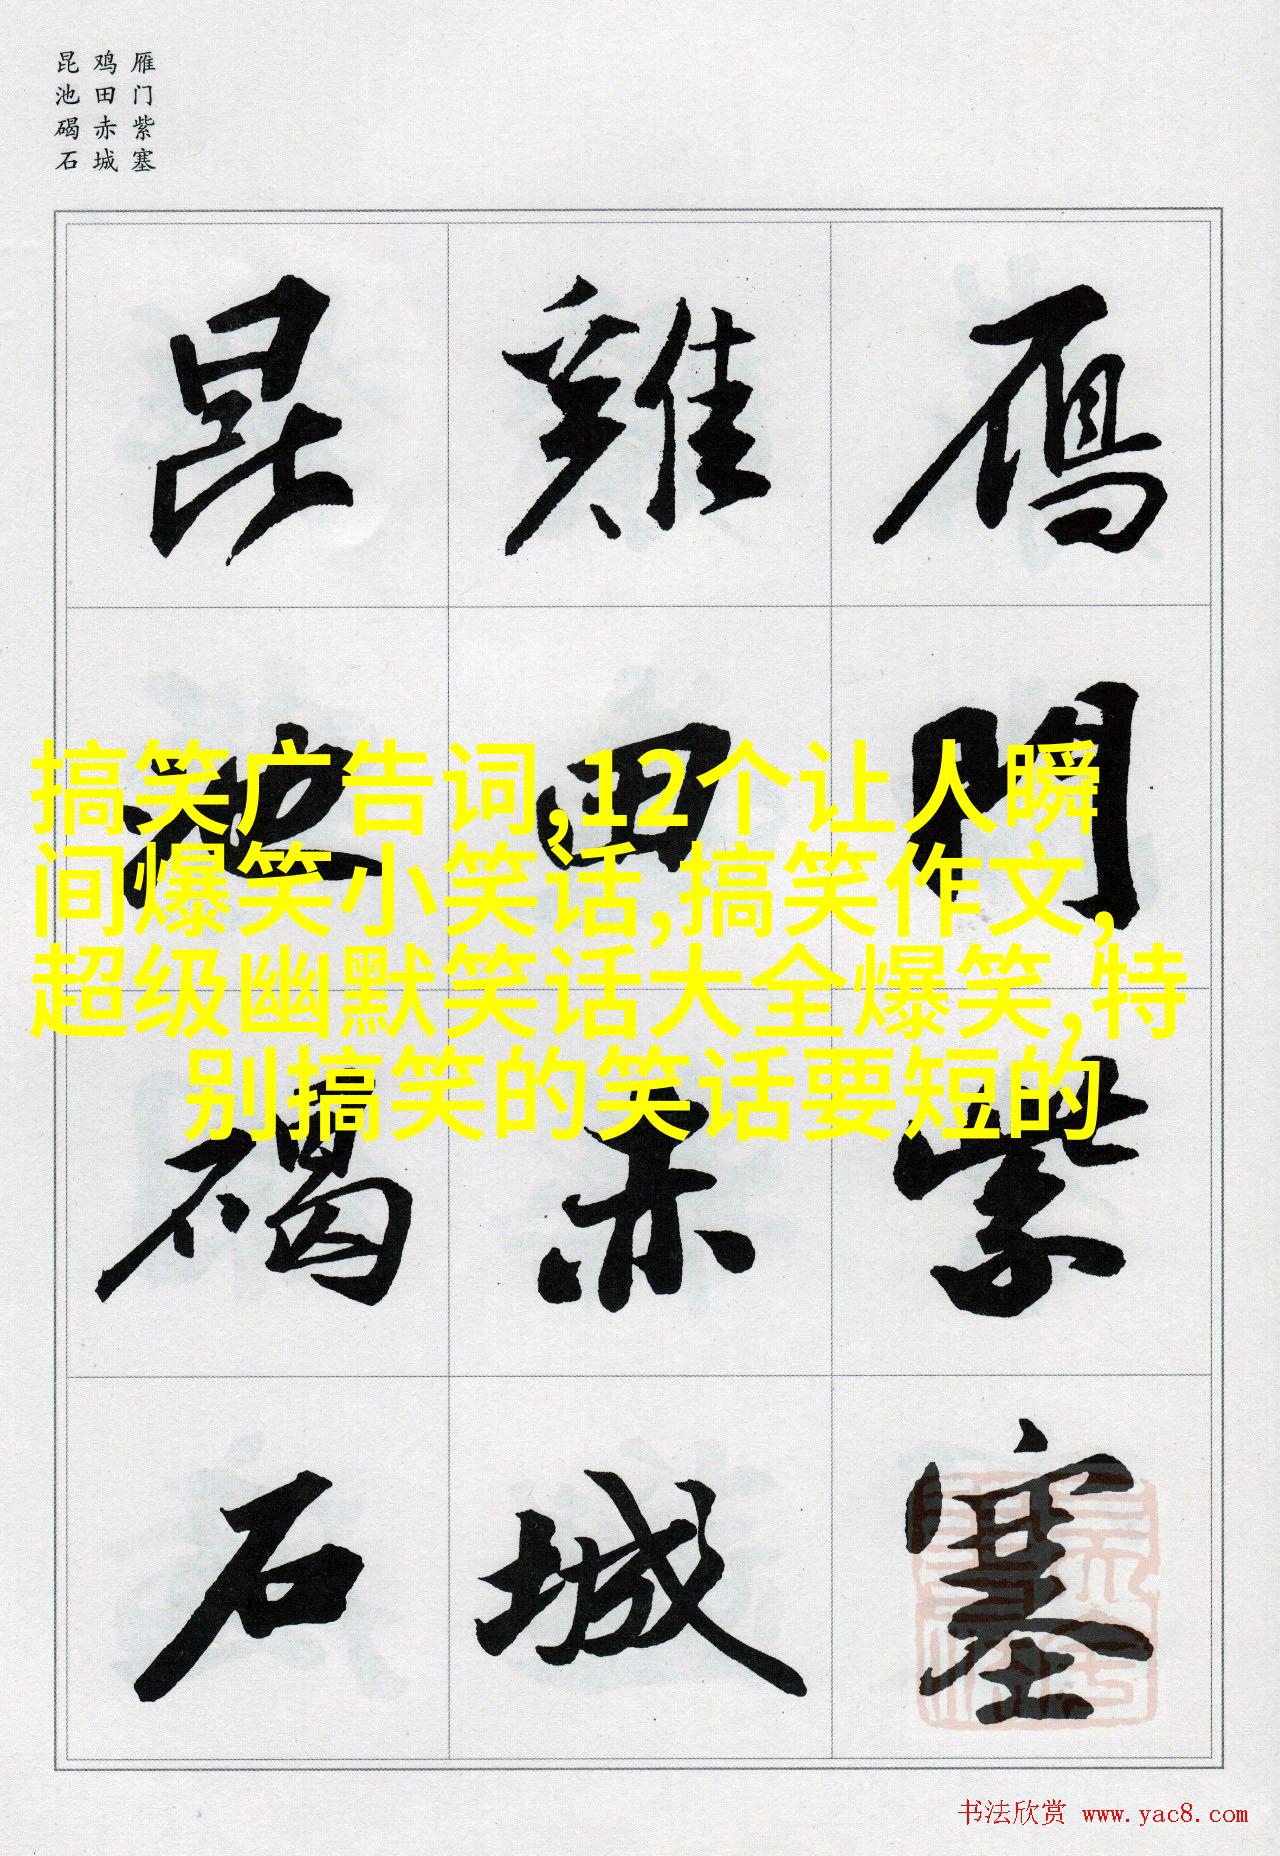 雁门紫塞
鸡田赤城
昆池碣石
雁門紫塞
雞田赤城
昆池碣石
搞笑广告词,12个让人瞬
间爆笑小笑话,搞笑作文,
超级幽默笑话大全爆笑,特
别搞笑的笑话要短的
书法欣赏 www.yac8.com